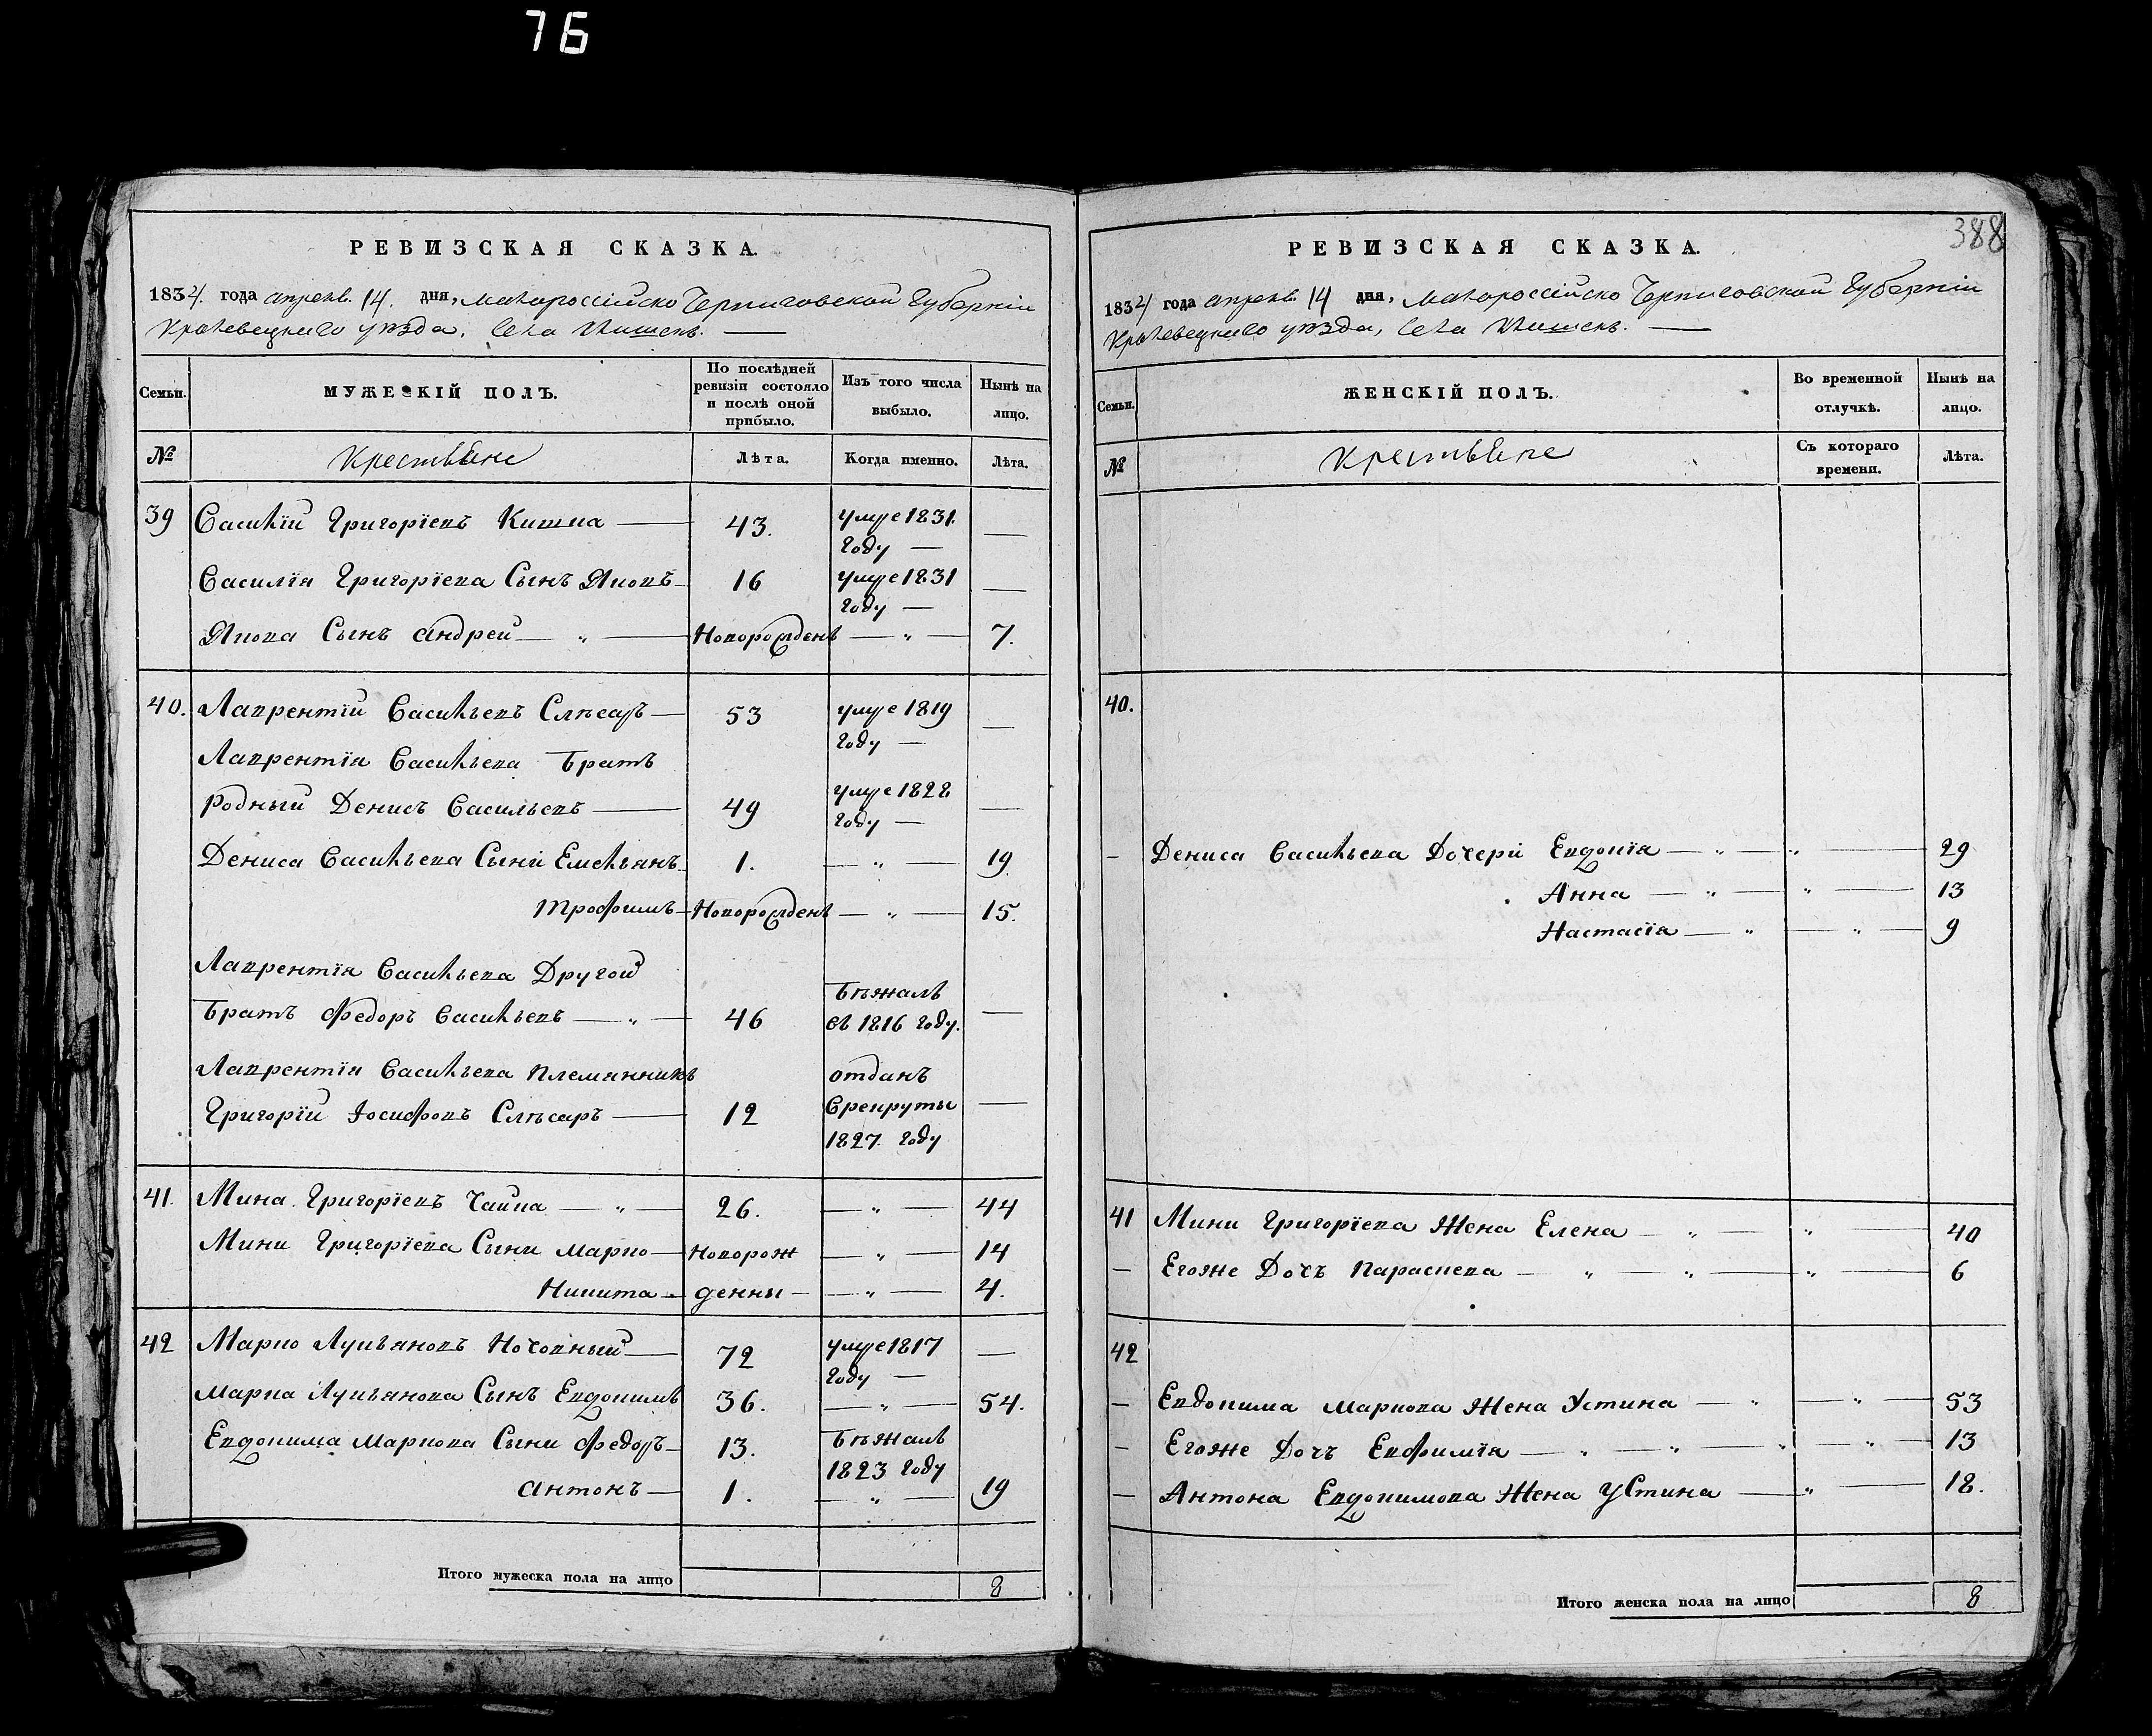 76
РЕВИЗСКАЯ СКАЗКА.
1834. года апрел. 14. дня, Малороссійско Черниговской Губерніи
Кролевецкаго уезда, села
Семьи.
МУЖЕСКІЙ ПОЛЪ.
По послѣдней ревизіи состояло и послѣ оной прибыло.
Изъ того числа выбыло.
Нынѣ на лицо.
№
Крестьяне
Лѣта.
Когда именно.
Лѣта.
39 Василій Григоріевъ Кишка — 43. умре 1831. году — —
Василія Григоріева Сынъ Яковъ — 16 умре 1831 году — —
Якова Сынъ Андрей — „ — Новорожденъ — „ — 7.
40. Лаврентій Васильевъ Слѣсаръ — 53 умре 1819 году — —
Лаврентія Васильева Братъ
родный Денисъ Васильевъ — 49 умре 1828 году — —
Дениса Васильева Сыни Емельянъ 1. — „ — 19.
Трофимъ — Новорожденъ — „ — 15.
Лаврентія Васильева Другой
Братъ Федоръ Васильевъ — „ — 46 Бѣжалъ въ 1816 году. —
Лаврентія Васильева племянникъ
Григорій Іосифовъ Слѣсаръ — 12 отданъ Врекруты 1827. году —
41. Мина Григоріевъ Чайка — „ — 26. — „ — 44
Мини Григоріева Сыни Марко — Новорож — „ — 14
Никита — денны — — „ — 4.
42 Марко Лукьяновъ Ночовный — 72 умре 1817 году — —
Марка Лукьянова Сынъ Евдокимъ 36. — „ — 54.
Евдокима Маркова Сыни Федоръ — 13. Бѣжалъ 1823 году
Антонъ — 1. — „ — 19
Итого мужеска пола на лицо 8
388
РЕВИЗСКАЯ СКАЗКА.
1834 года апрел. 14 дня, Малороссійско Черниговской Губерніи
Кролевецкаго уезда, села
Семьи.
ЖЕНСКІЙ ПОЛЪ.
Во временной отлучкѣ.
Нынѣ на лицо.
№
Крестьяне
Съ котораго времени.
Лѣта.
40.
— Дениса Васильева Дочери Евдокія — „ — „ — 29
Анна — „ — „ — 13
Настасія — „ — „ — 9
41 Мини Григоріева Жена Елена — „ — „ — 40
— Егоже Дочъ Параскева — „ — „ — „ — 6
42
— Евдокима Маркова Жена Устина — „ — „ — 53
— Егоже Дочъ Евфимія — „ — „ — „ — „ — 13
— Антона Евдокимова Жена Устина — „ — 18.
Итого женска пола на лицо 8